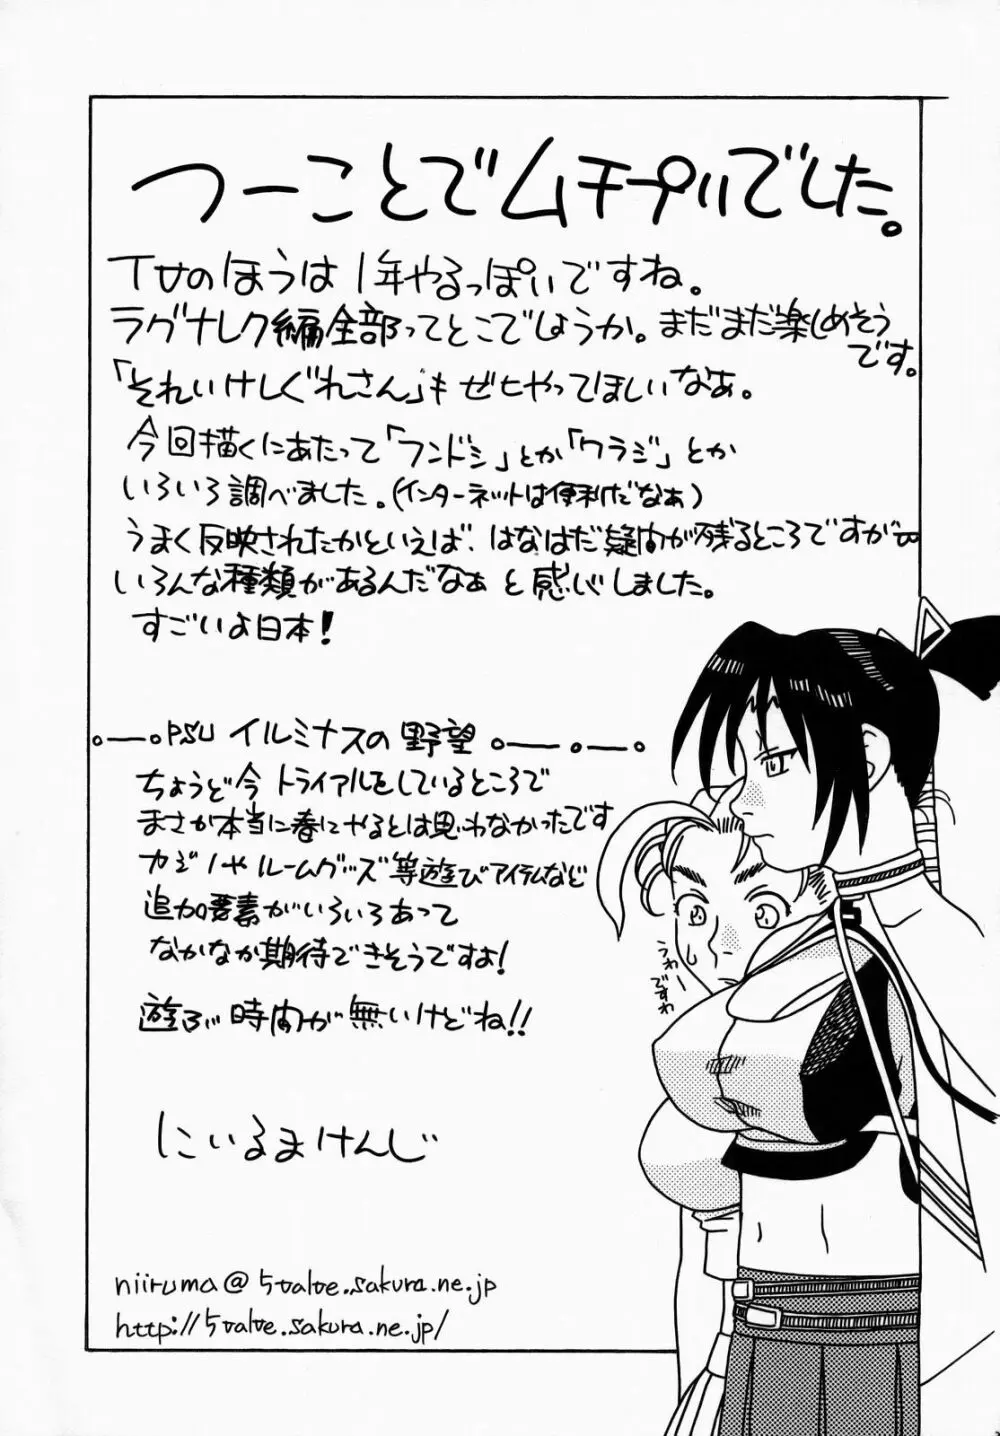 つーことでムチプリでした。
TVのほうは1年やるっぽいですね。
ラグナレク編全部ってとこでしょうか。まだまだ楽しめそう
です。
「それいけしぐれさん」もぜヒやってほしいなあ。
今回描くにあたって「フンドシ」とか「ワラジ」とか
いろいろ調べました。(インターネットは便利だなぁ)
うまく反映されたかといえば、はなはだ疑問が残るところですが
いろんな種類があるんだなぁと感心しました。
すごいよ日本!
PSU イルミナスの野望
ちょうど今トライアルをしているところで
まさか本当に春にやるとは思わなかったです
カジノやルームグッズ等遊びアイテムなど
追加要素がいろいろあって
なかなか期待できそうですよ!
遊ぶ時間が無いけどね!!
うわー
ですわ
にいるまけんじ
niiruma@5valve.sakura.ne.jp
http://5valve.sakura.ne.jp/